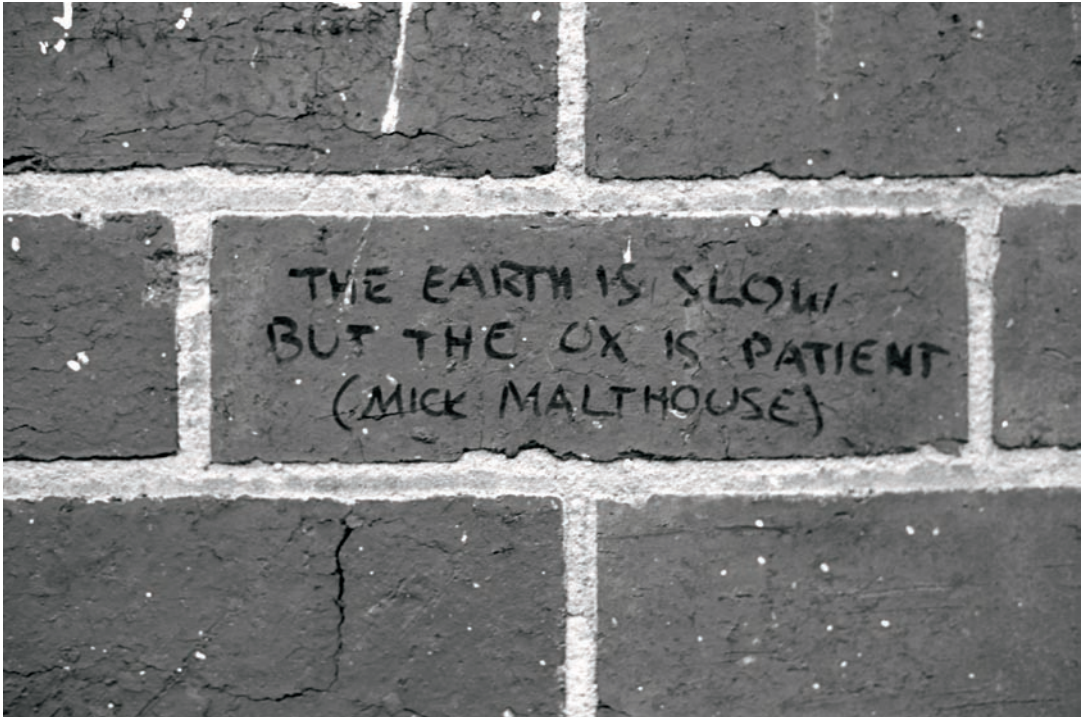 THE EARTH IS SLOW
BUT THE OX IS PATIENT
(MICK MALTHOUSE)